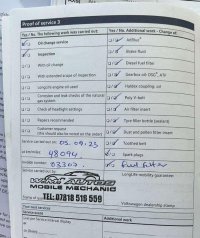 Proof of service 3
Yes / No. The following work was carried out:
Yes / No. Additional work - Change of:
Oil change service
AdBlue®
Inspection
Brake fluid
With oil change
Diesel Fuel filter
With extended scope of inspection
Gearbox oil DSG®, ATF
LongLife engine oil used
Haldex coupling oil
Corrosion and leak checks of the natural gas system
Poly V-belt
Check of headlight settings
Air filter insert
Repairs recommended
Tyre filler bottle (sealant)
Customer request
(this should also be noted on the order)
Dust and pollen filter insert
Service carried out on: 05.09.23
Toothed belt
at km/miles: 48094
Spark plugs
Invoice number: 03307
fuel filter
Service carried out by:
LongLife mobility guarantee
MOBILE MECHANIC
TEL: 07818 516 559
Volkswagen dealership stamp
Next service
Additional work